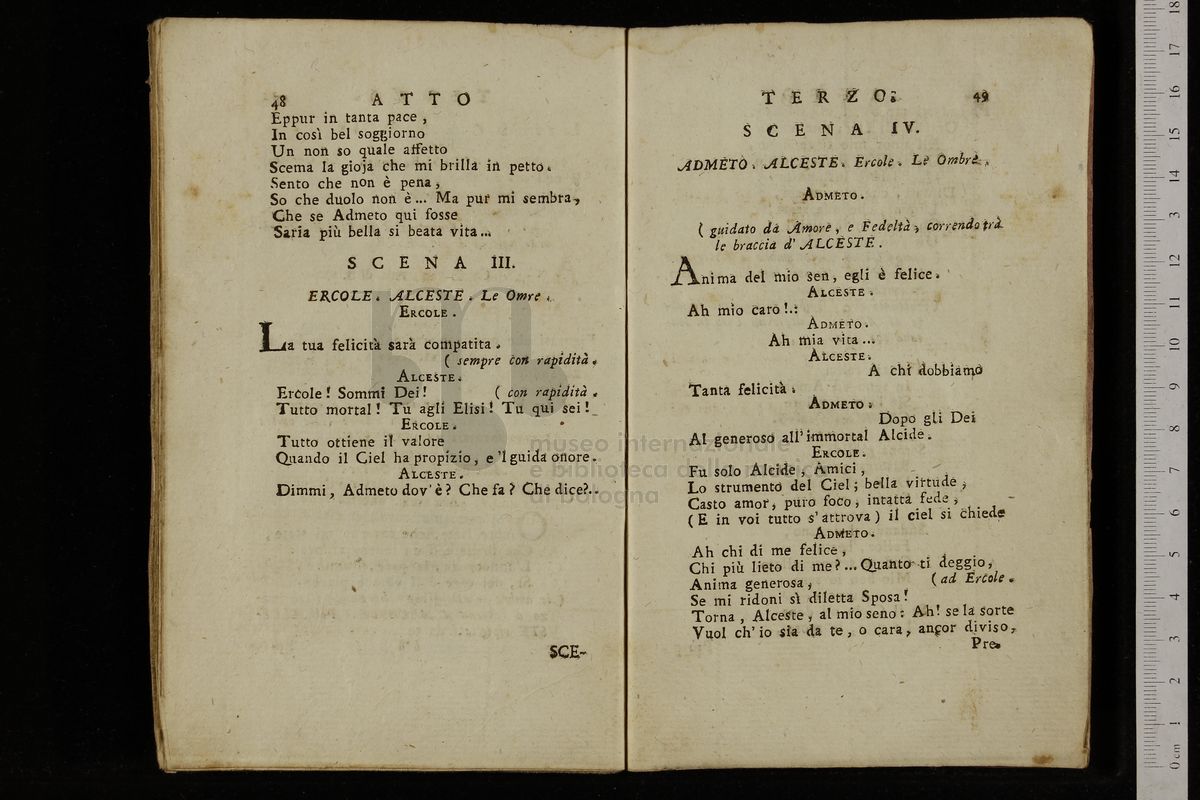 48 ATTO
Eppur in tanta pace,
In così bel soggiorno
Un non so quale affetto
Scema la gioja che mi brilla in petto.
Sento che non è pena,
So che duolo non è... Ma pur mi sembra,
Che se Admeto qui fosse
Saria più bella si beata vita...
SCENA III.
ERCOLE. ALCESTE. Le Omre.
ERCOLE.
La tua felicità sarà compatita.
( sempre con rapidità.
ALCESTE.
Ercole! Sommi Dei! ( con rapidità.
Tutto mortal! Tu agli Elisi! Tu qui sei!
ERCOLE.
Tutto ottiene il valore
Quando il Ciel ha propizio, e 'l guida onore.
ALCESTE.
Dimmi, Admeto dov'è? Che fa? Che dice?..
SCE-
TERZO. 49
SCENA IV.
ADMETO. ALCESTE. Ercole. Le Ombre.
ADMETO.
( guidato da Amore, e Fedeltà, correndo trà
le braccia d'ALCESTE.
Anima del mio sen, egli è felice.
ALCESTE.
Ah mio caro!..
ADMETO.
Ah mia vita...
ALCESTE.
A chi dobbiamo
Tanta felicità.
ADMETO.
Dopo gli Dei
Al generoso all'immortal Alcide.
ERCOLE.
Fu solo Alcide, Amici,
Lo strumento del Ciel; bella virtude,
Casto amor, puro foco, intatta fede,
( E in voi tutto s'attrova ) il ciel si chiede
ADMETO.
Ah chi di me felice,
Chi più lieto di me?... Quanto ti deggio,
Anima generosa, ( ad Ercole.
Se mi ridoni sì diletta Sposa!
Torna, Alceste, al mio seno: Ah! se la sorte
Vuol ch'io sia da te, o cara, ançor diviso,
Pre-
museo internazionale
e biblioteca della musica
di bologna
0 cm 1 2 3 4 5 6 7 8 9 10 11 12 13 14 15 16 17 18